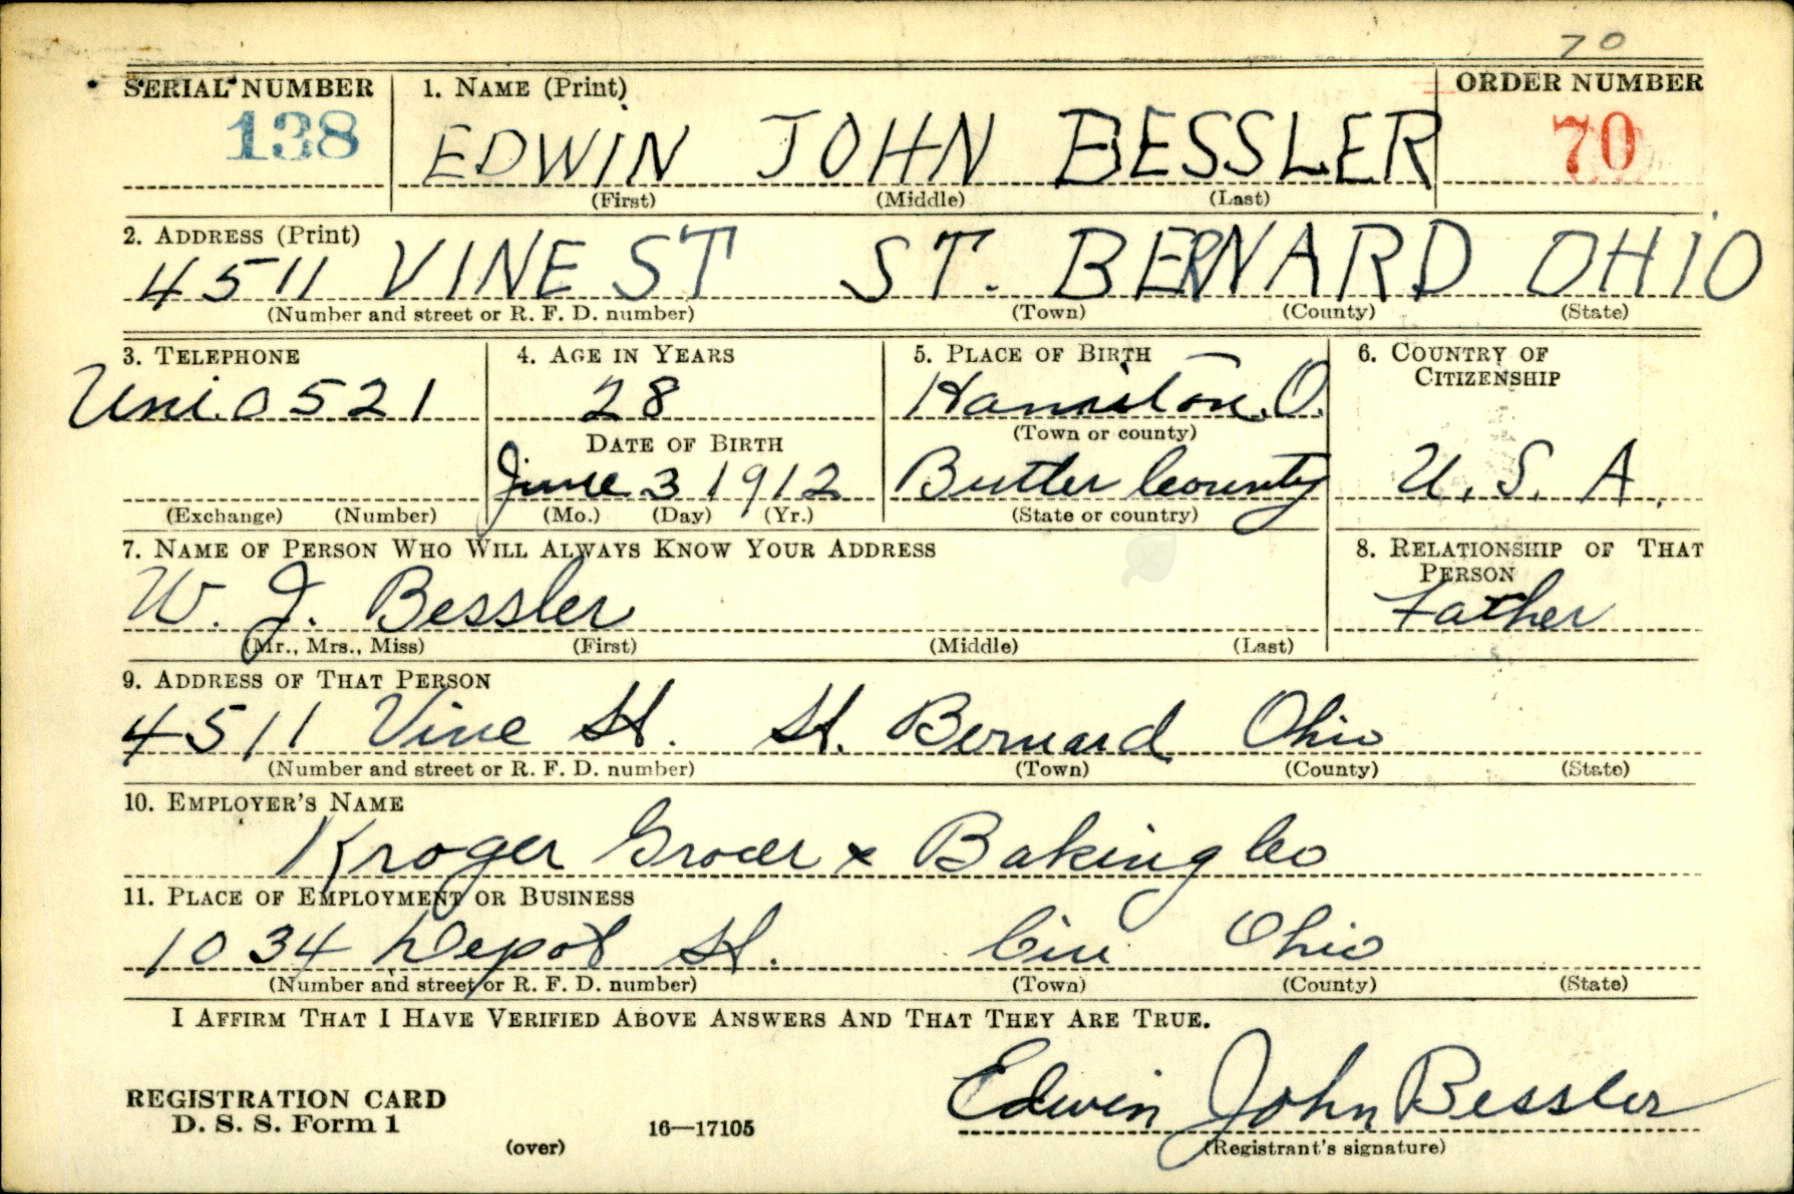 70
SERIAL NUMBER 1. NAME (Print) ORDER NUMBER
138 EDWIN JOHN BESSLER 70
(First) (Middle) (Last)
2. ADDRESS (Print)
4511 VINE ST ST. BERNARD OHIO
(Number and street or R. F. D. number) (Town) (County) (State)
3. TELEPHONE 4. AGE IN YEARS 5. PLACE OF BIRTH 6. COUNTRY OF
CITIZENSHIP
Uni. 0521 28 Hamilton. O.
DATE OF BIRTH (Town or county)
June 3 1912 Butler County U. S. A.
(Exchange) (Number) (Mo.) (Day) (Yr.) (State or country)
7. NAME OF PERSON WHO WILL ALWAYS KNOW YOUR ADDRESS 8. RELATIONSHIP OF THAT
PERSON
W. J. Bessler Father
(Mr., Mrs., Miss) (First) (Middle) (Last)
9. ADDRESS OF THAT PERSON
4511 Vine St. St. Bernard Ohio
(Number and street or R. F. D. number) (Town) (County) (State)
10. EMPLOYER'S NAME
Kroger Grocer & Baking Co
11. PLACE OF EMPLOYMENT OR BUSINESS
1034 Depot St. Cin. Ohio
(Number and street or R. F. D. number) (Town) (County) (State)
I AFFIRM THAT I HAVE VERIFIED ABOVE ANSWERS AND THAT THEY ARE TRUE.
Edwin John Bessler
REGISTRATION CARD
D. S. S. Form 1
(over) 16—17105 (Registrant's signature)